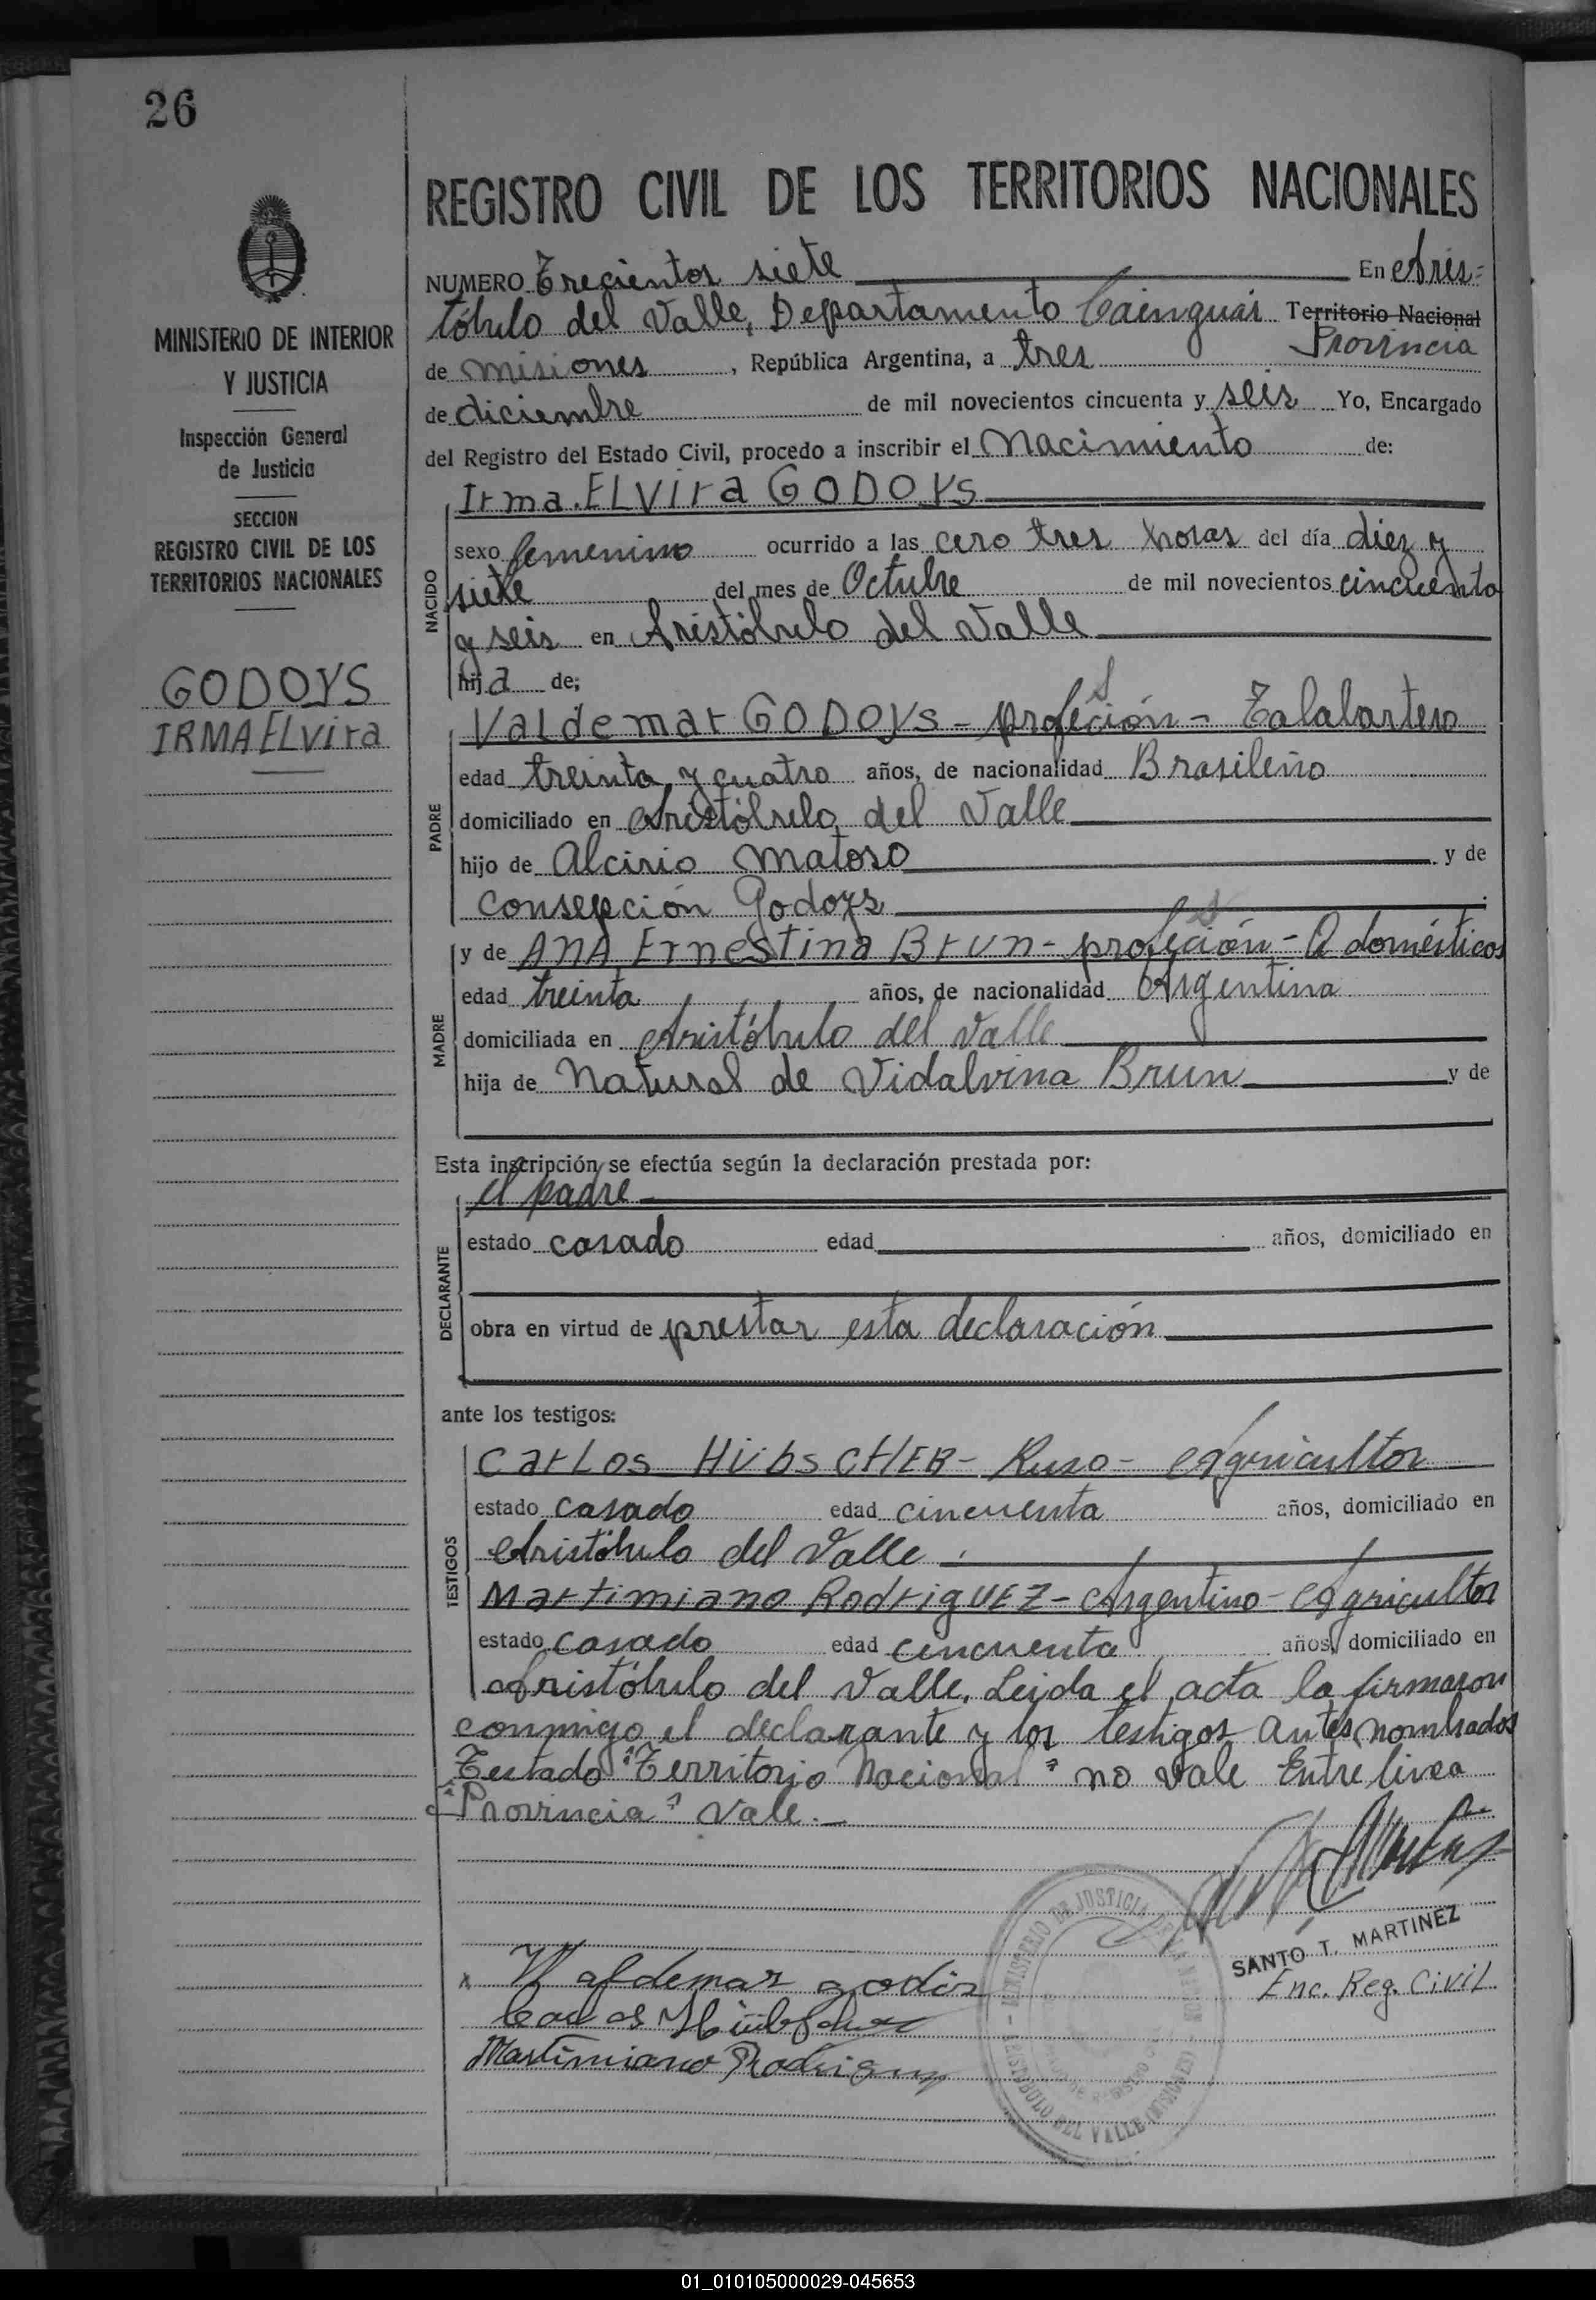 26
MINISTERIO DE INTERIOR
Y JUSTICIA
Inspección General
de Justicia
SECCION
REGISTRO CIVIL DE LOS
TERRITORIOS NACIONALES
GODOYS
IRMA ELVira
REGISTRO CIVIL DE LOS TERRITORIOS NACIONALES
NUMERO Trecientos siete En Aris=
tóbulo del Valle, Departamento Cainguás Territorio Nacional
Provincia
de misiones, República Argentina, a tres
de diciembre de mil novecientos cincuenta y seis Yo, Encargado
del Registro del Estado Civil, procedo a inscribir el Nacimiento de:
Irma. ELVira GODOYS
NACIDO
sexo femenino ocurrido a las cero tres horas del día diez y
siete del mes de Octubre de mil novecientos cincuenta
y seis en Aristóbulo del Valle
hija de;
PADRE
S
VaLdemar GODOYS - profeción - Talabartero
edad treinta y cuatro años, de nacionalidad Brasileño
domiciliado en Aristóbulo del Valle
hijo de Alcirio Matoso y de
Consepción Godoys
MADRE
S
y de ANA Ernestina Brun - profeción - Q domésticos
edad treinta años, de nacionalidad Argentina
domiciliada en Aristóbulo del Valle
hija de Natural de Vidalvina Brun y de
Esta inscripción se efectúa según la declaración prestada por:
DECLARANTE
el padre
estado casado edad años, domiciliado en
obra en virtud de prestar esta declaración
ante los testigos:
TESTIGOS
CarLos HübsCHER - Ruso - Agricultor
estado casado edad cincuenta años, domiciliado en
Aristóbulo del Valle
Martimiano RodrigUEZ - Argentino - Agricultor
estado casado edad cincuenta años, domiciliado en
Aristóbulo del Valle. Leida el acta la firmaron
conmigo el declarante y los testigos antes nombrados
Testado "Territorio Nacional" no vale Entre linea
"Provincia" vale.-
SANTO T. MARTINEZ
Enc. Reg. Civil
x Waldemar godois
Carlos Hübscher
Martimiano Rodriguez
MINISTERIO DE JUSTICIA
DEL VALLE (MISIONES)
01_010105000029-045653